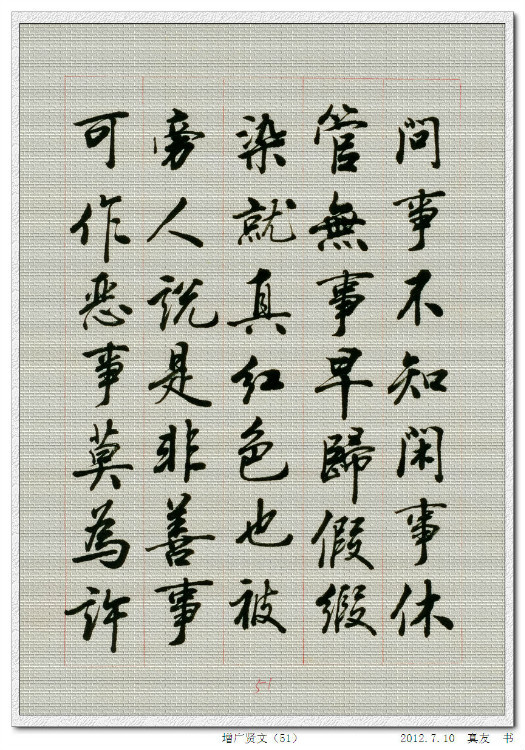 問事不知閑事休
管無事早歸假緞
染就真紅色也被
旁人說是非善事
可作恶事莫為許
51
增广贤文（51）
2012.7.10 真友 书